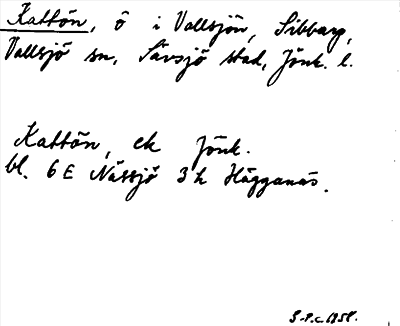 Kattön, ö i Vallsjön, Sibbarp,
Vallsjö sn, Sävsjö stad, Jönk. l.
Kattön, ek Jönk.
bl. 6 E Nässjö 3 h Hägganäs.